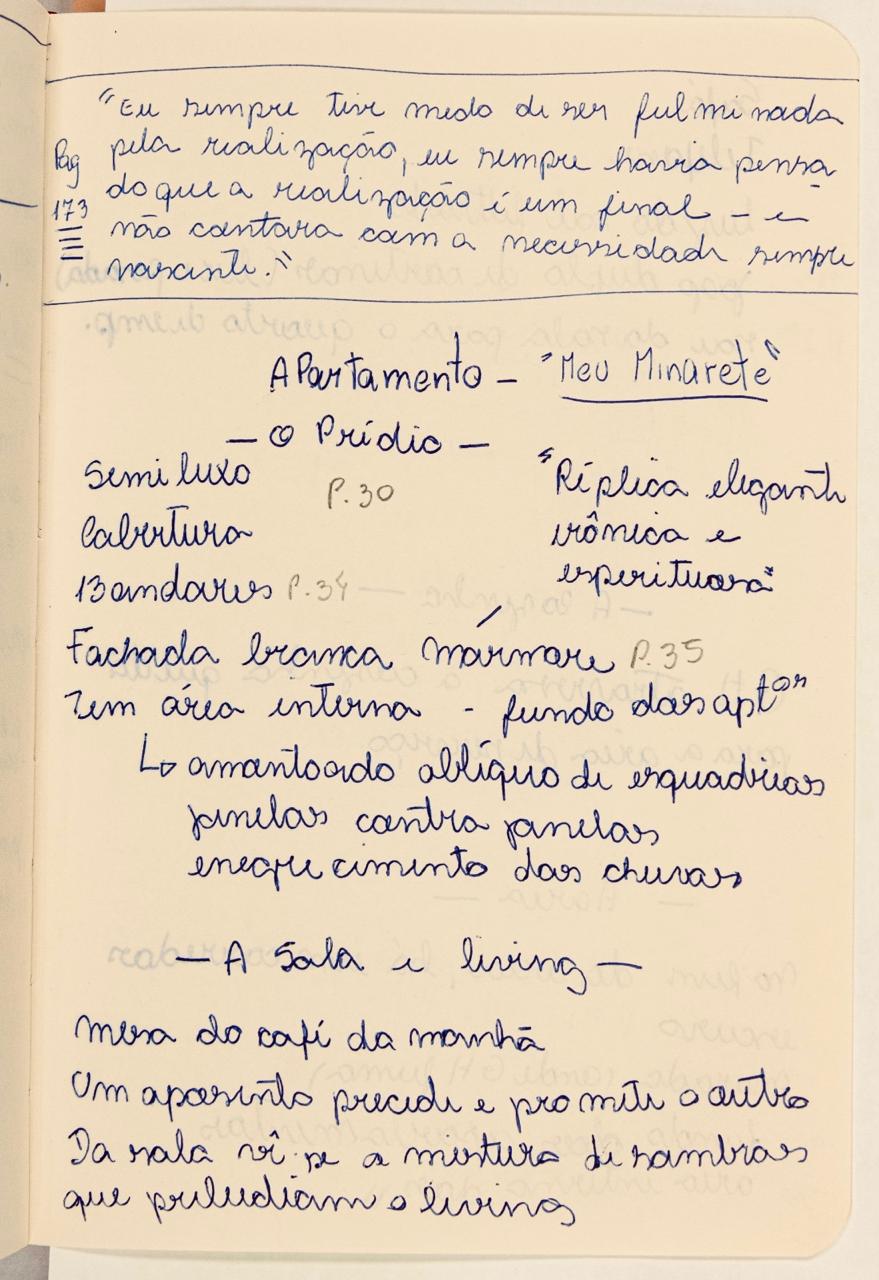 "Eu sempre tive medo de ser fulminada
pela realização, eu sempre havia pensa
Pág
173
do que a realização é um final – e
não contara com a necessidade sempre
nascente."
APartamento – "Meu Minarete"
– O Prédio –
Semi luxo
P.30
"Réplica elegante
Cobertura
irônica e
13 andares P.34
esperituosa"
Fachada branca mármore P.35
Tem área interna - fundo dos aptos
↳ amontoado oblíquo de esquadrias
janelas contra janelas
enegrecimento das chuvas
– A Sala e living –
mesa do café da manhã
Um aposento precede e promete o outro
Da sala vê-se a mistura de sombras
que preludiam o living